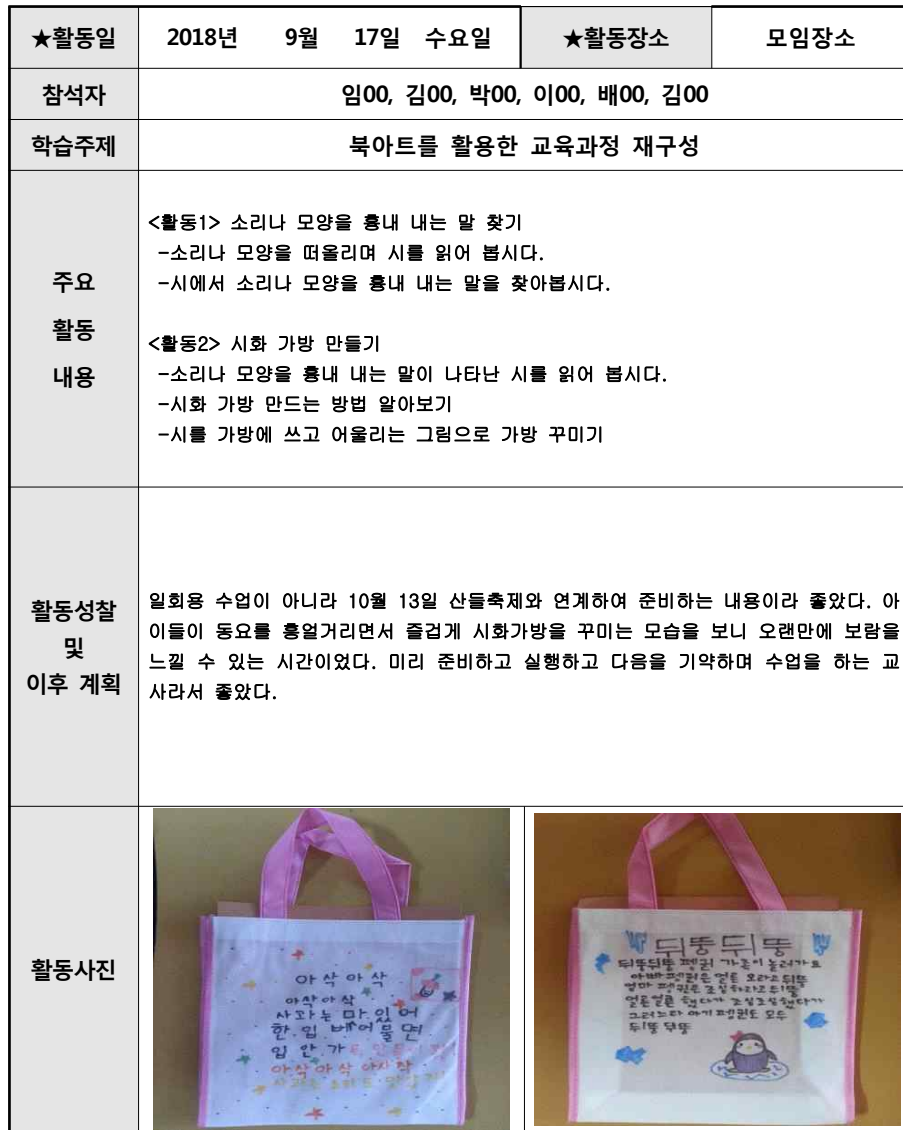 ★활동일 2018년 9월 17일 수요일 ★활동장소 모임장소
참석자 임00, 김00, 박00, 이00, 배00, 김00
학습주제 북아트를 활용한 교육과정 재구성
주요
활동
내용
<활동1> 소리나 모양을 흉내 내는 말 찾기
-소리나 모양을 떠올리며 시를 읽어 봅시다.
-시에서 소리나 모양을 흉내 내는 말을 찾아봅시다.
<활동2> 시화 가방 만들기
-소리나 모양을 흉내 내는 말이 나타난 시를 읽어 봅시다.
-시화 가방 만드는 방법 알아보기
-시를 가방에 쓰고 어울리는 그림으로 가방 꾸미기
활동성찰
및
이후 계획
일회용 수업이 아니라 10월 13일 산들축제와 연계하여 준비하는 내용이라 좋았다. 아
이들이 동요를 흥얼거리면서 즐겁게 시화가방을 꾸미는 모습을 보니 오랜만에 보람을
느낄 수 있는 시간이었다. 미리 준비하고 실행하고 다음을 기약하며 수업을 하는 교
사라서 좋았다.
활동사진
아삭아삭
아삭아삭
사과는 맛있어
한 입 베어물면
입 안 가득
아삭아삭 아사삭
뒤뚱뒤뚱
뒤뚱뒤뚱 펭귄 가족이 놀러가요
아빠 펭귄은 얼른 오라고 뒤뚱
엄마 펭귄은 조심하라고 뒤뚱
얼른얼른 했다가 조심조심 했다가
그러느라 아기 펭귄도 모두
뒤뚱 뒤뚱